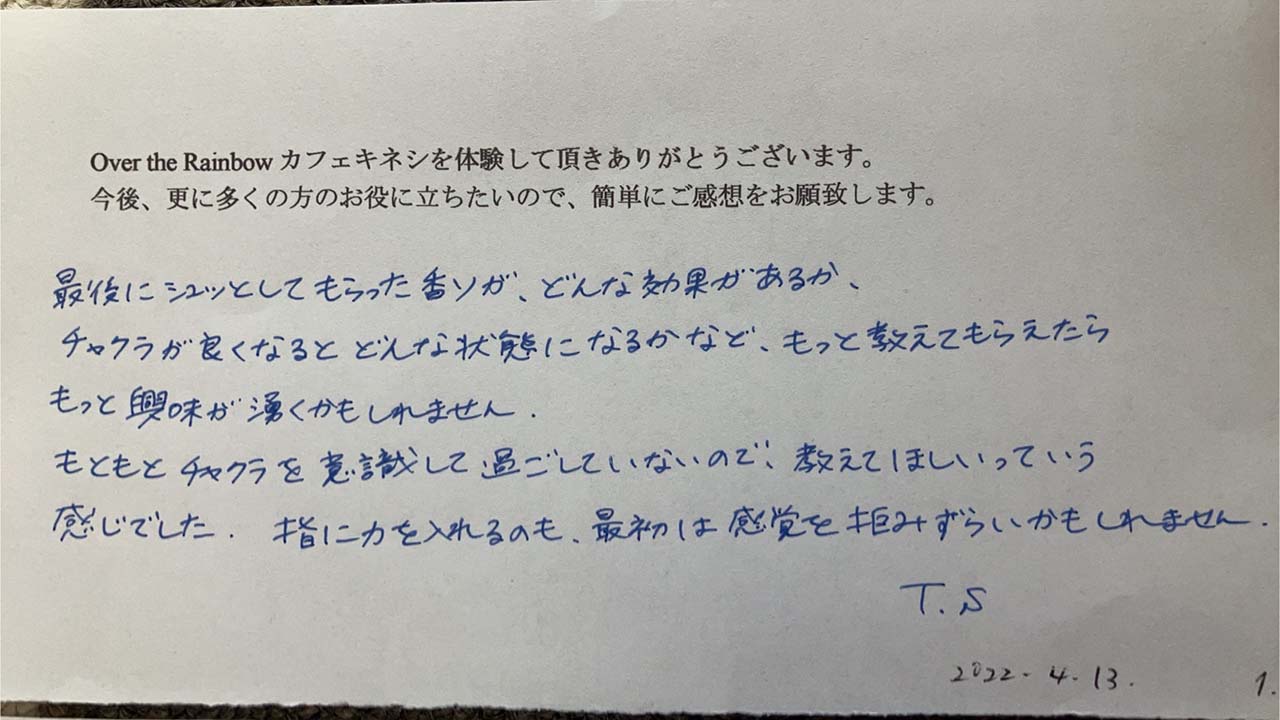 Over the Rainbow カフェキネシを体験して頂きありがとうございます。
今後、更に多くの方のお役に立ちたいので、簡単にご感想をお願致します。
最後にシュッとしてもらった香りが、どんな効果があるか、
チャクラが良くなるとどんな状態になるかなど、もっと教えてもらえたら
もっと興味が湧くかもしれません.
もともとチャクラを意識して過ごしていないので、教えてほしいっていう
感じでした. 指に力を入れるのも、最初は感覚を拒みずらいかもしれません.
T.S
2022.4.13.
1.